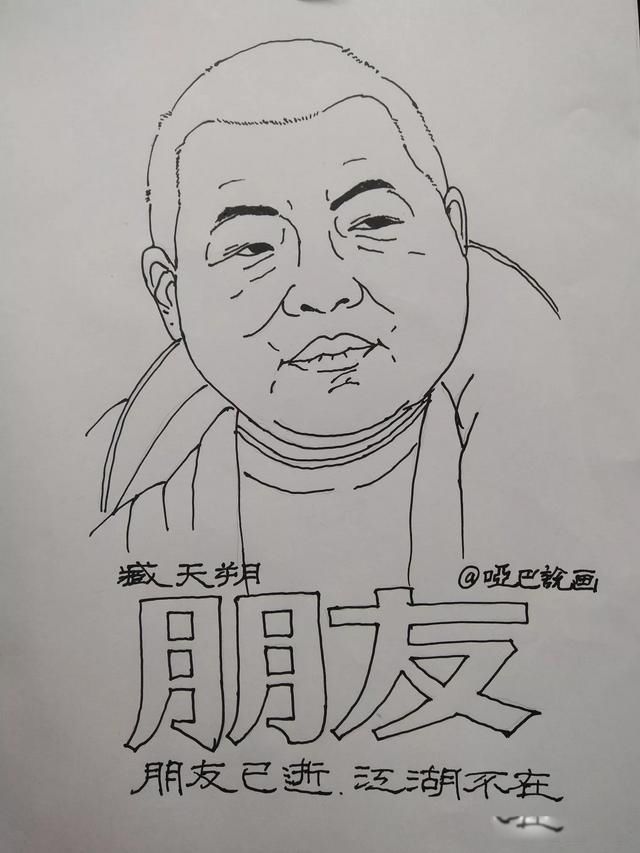 臧天朔 @哑巴說画
朋友
朋友已逝.江湖不在